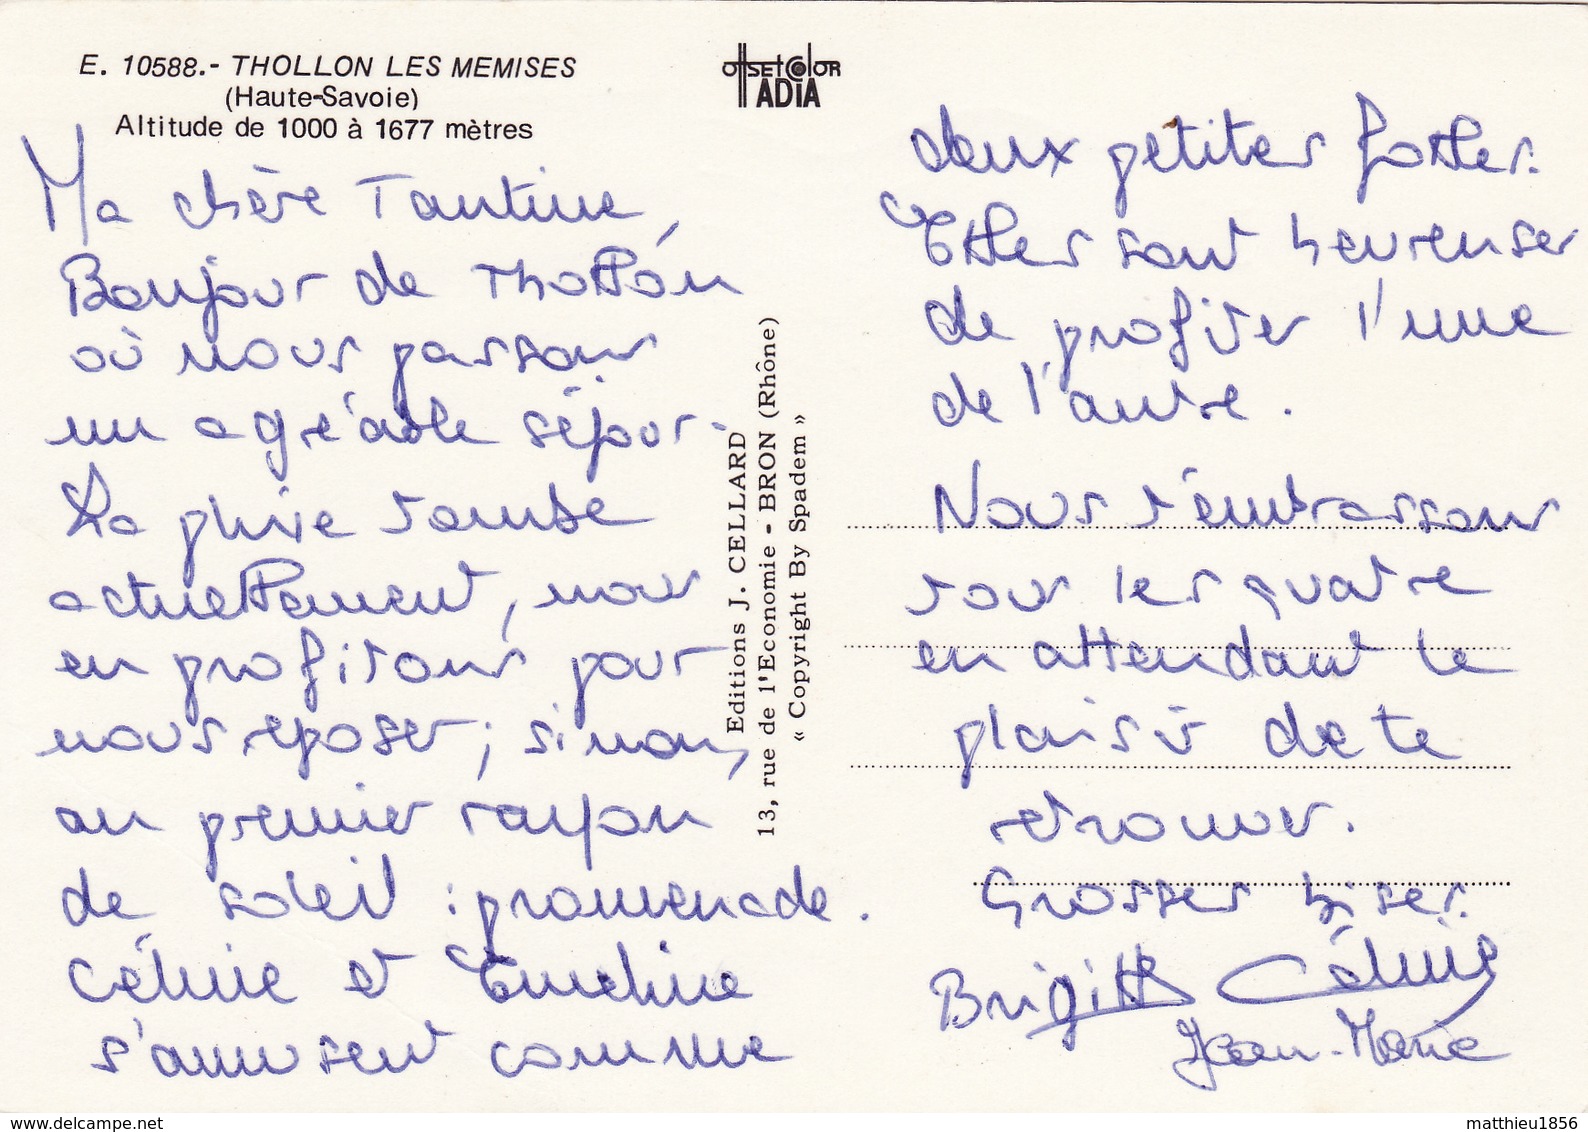 E. 10588.- THOLLON LES MEMISES
(Haute-Savoie)
Altitude de 1000 à 1677 mètres
OffSEt COlOR
ADIA
Ma chère Tantine,
Bonjour de Thollon
où nous passons
un agréable séjour.
La pluie tombe
actuellement, nous
en profitons pour
nous reposer ; sinon,
au premier rayon
de soleil : promenade.
Céline et Emeline
s'amusent comme
Editions J. CELLARD
13, rue de l'Economie - BRON (Rhône)
« Copyright By Spadem »
deux petites folles.
Elles sont heureuses
de profiter l'une
de l'autre.
Nous t'embrassons
tous les quatre
en attendant le
plaisir de te
retrouver.
Grosses bises.
Brigitte Céline
Jean-Marie
matthieu1856